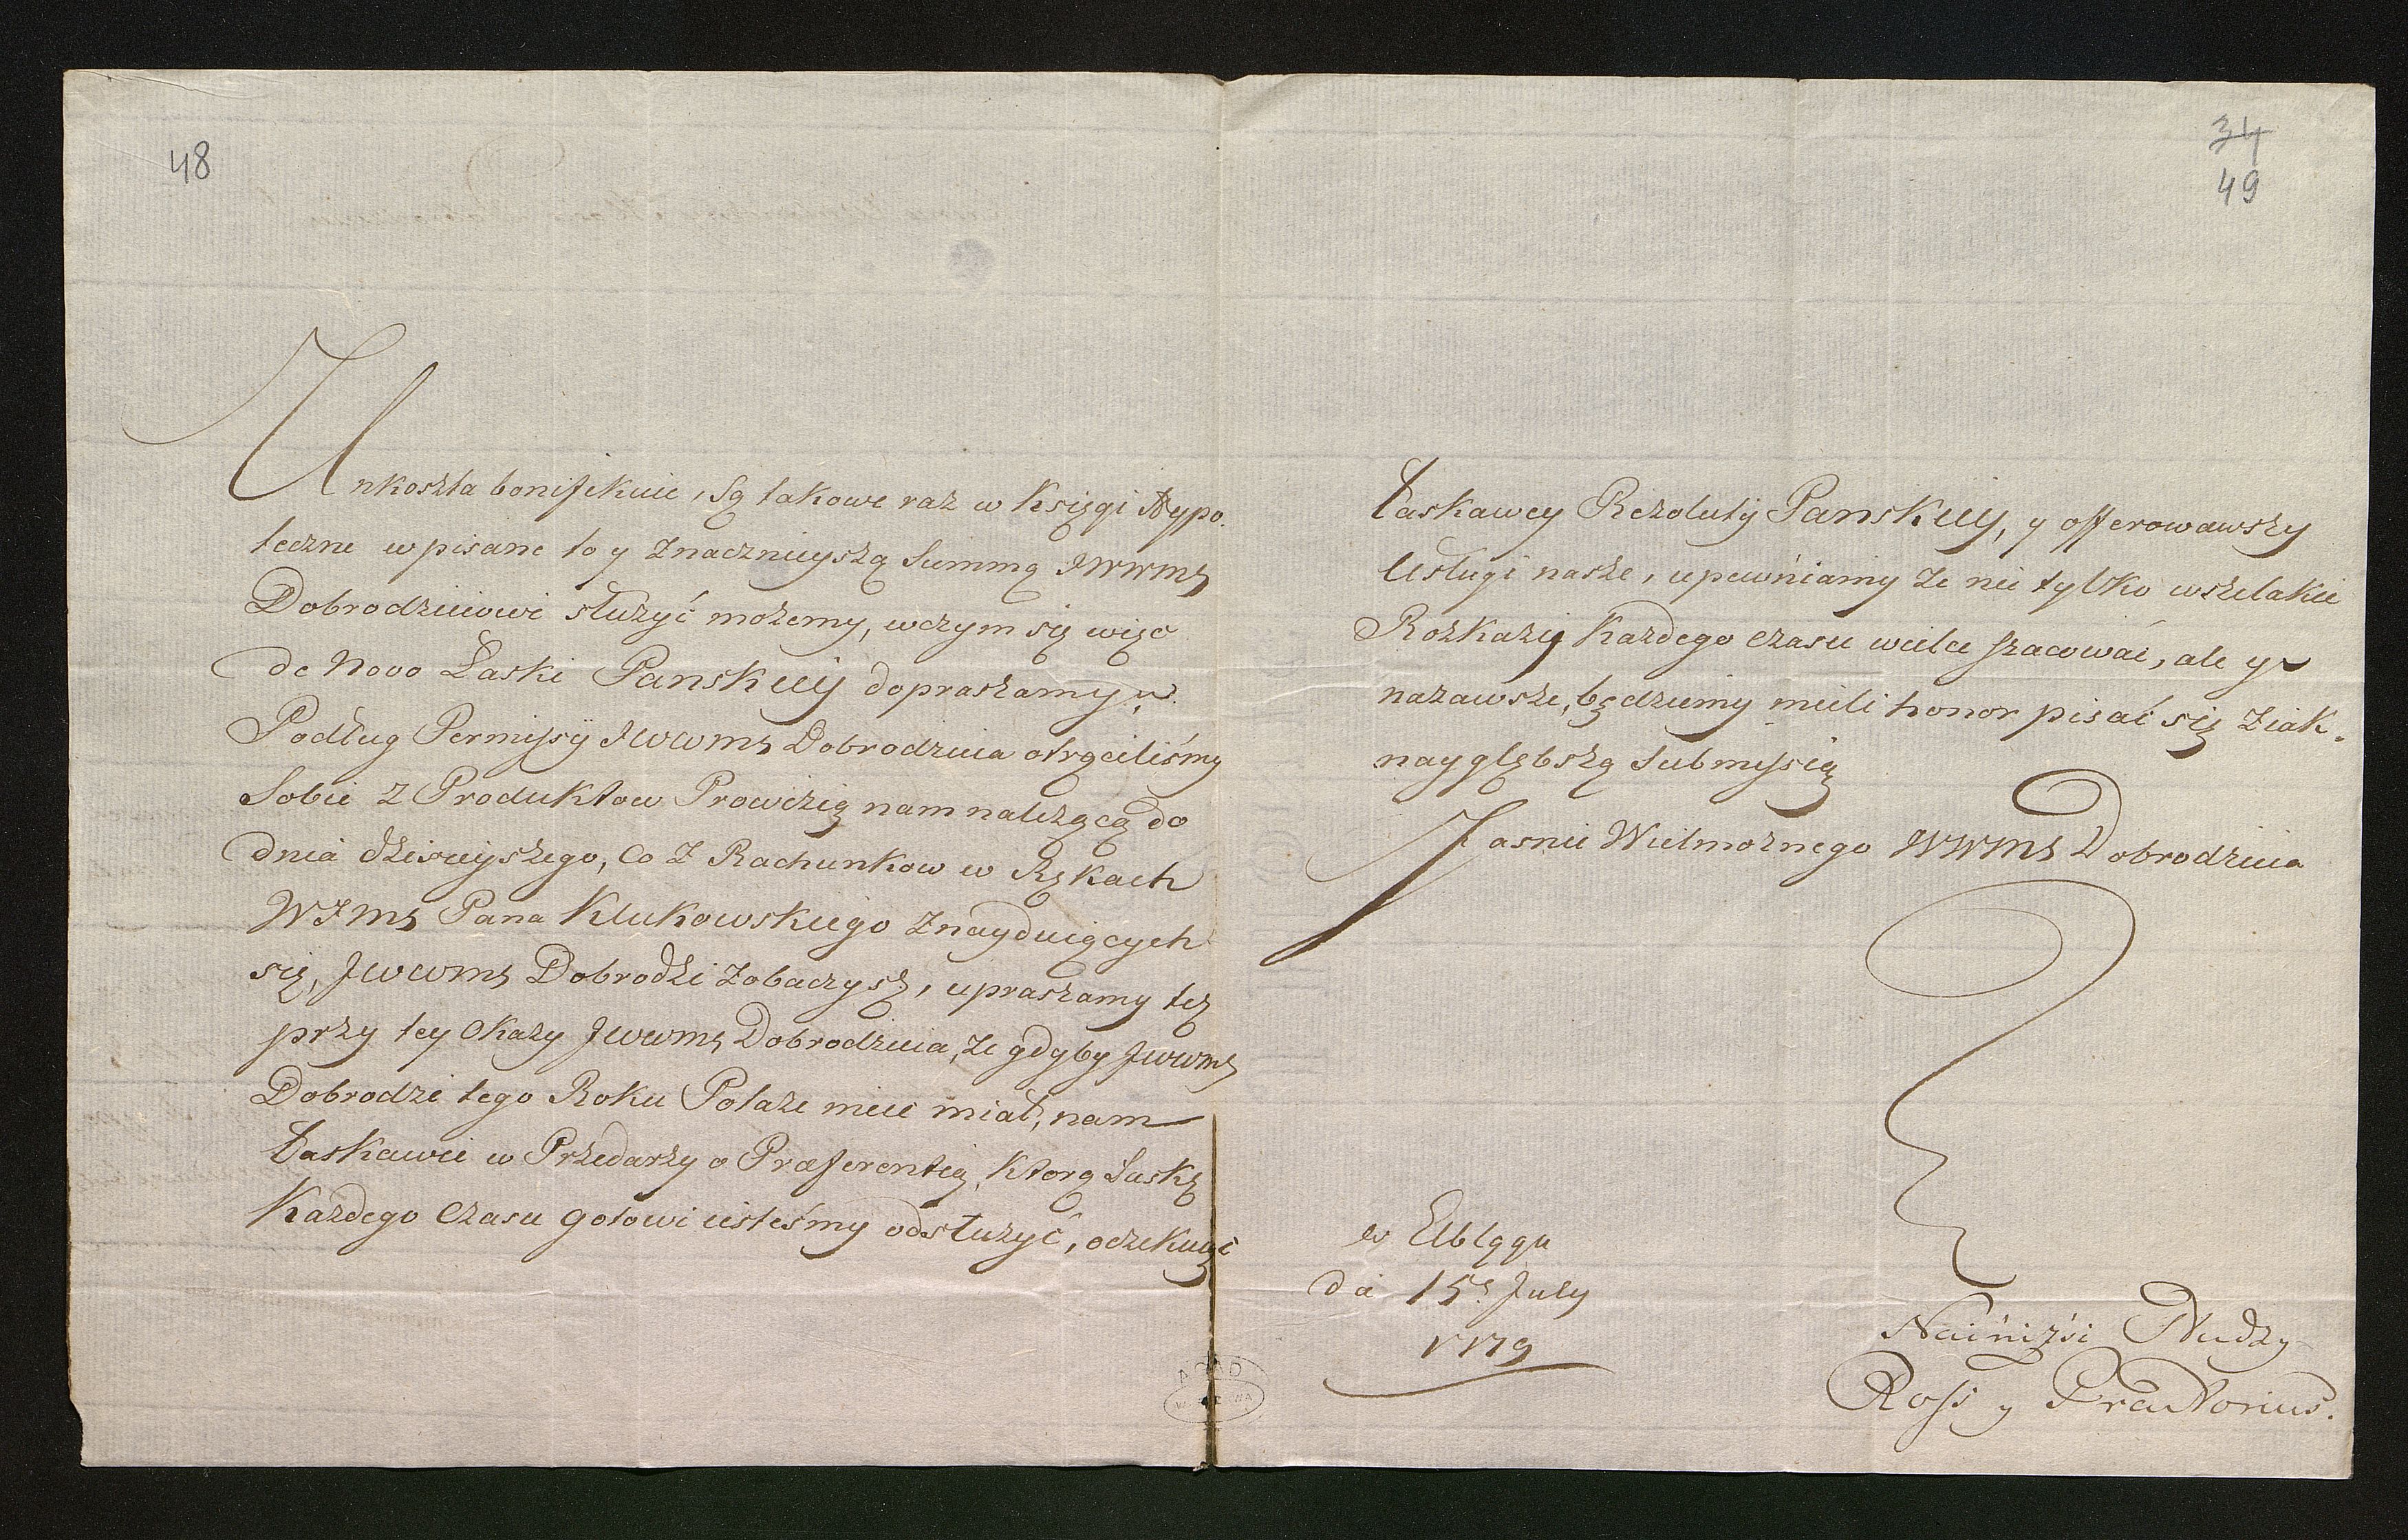 48
Unkoszta bonifikuie, Są takowe raz w Księgi Hypo-
teczne wpisane to y Znacznieyszą Summą JWWMć
Dobrodzieiowi służyć możemy, wczym się więc
de Novo Łaski Panskiey dopraszamy.
Podług Permissÿ JWWMć Dobrodzieia otrąciliśmy
Sobie z Produktow Prowizią nam należącą do
dnia dzisieyszego, Co z Rachunkow w Rękach
WJMć Pana Klukowskiego Znayduiących
się, JWWMć Dobrodżi zobaczysz, upraszamy tez
przy tey Okazy JWWMć Dobrodzieia, że gdyby JWWMć
Dobrodzi tego Roku Potaże miec miał, nam
Łaskawie w Przedarzy o Præferentią, Ktorą Łaskę
Każdego Czasu gotowi iesteśmy odsłużyć, oczekuiąc
34
49
Łaskawey Rezoluty Panskiey, y offerowawszy
Usługi nasze, upewniamy że nie tylko wszelakie
Rozkazy Każdego czasu wielce szacować, ale y
nazawsze, będziemy mieli honor pisać się Ziak-
nayglębszą Submissią
Jasnie Wielmożnego WWMć Dobrodzieia
w Elblągu
da 15t July
1779
Nainiżśi Słudzy
Ross y Prætorius.
AGAD